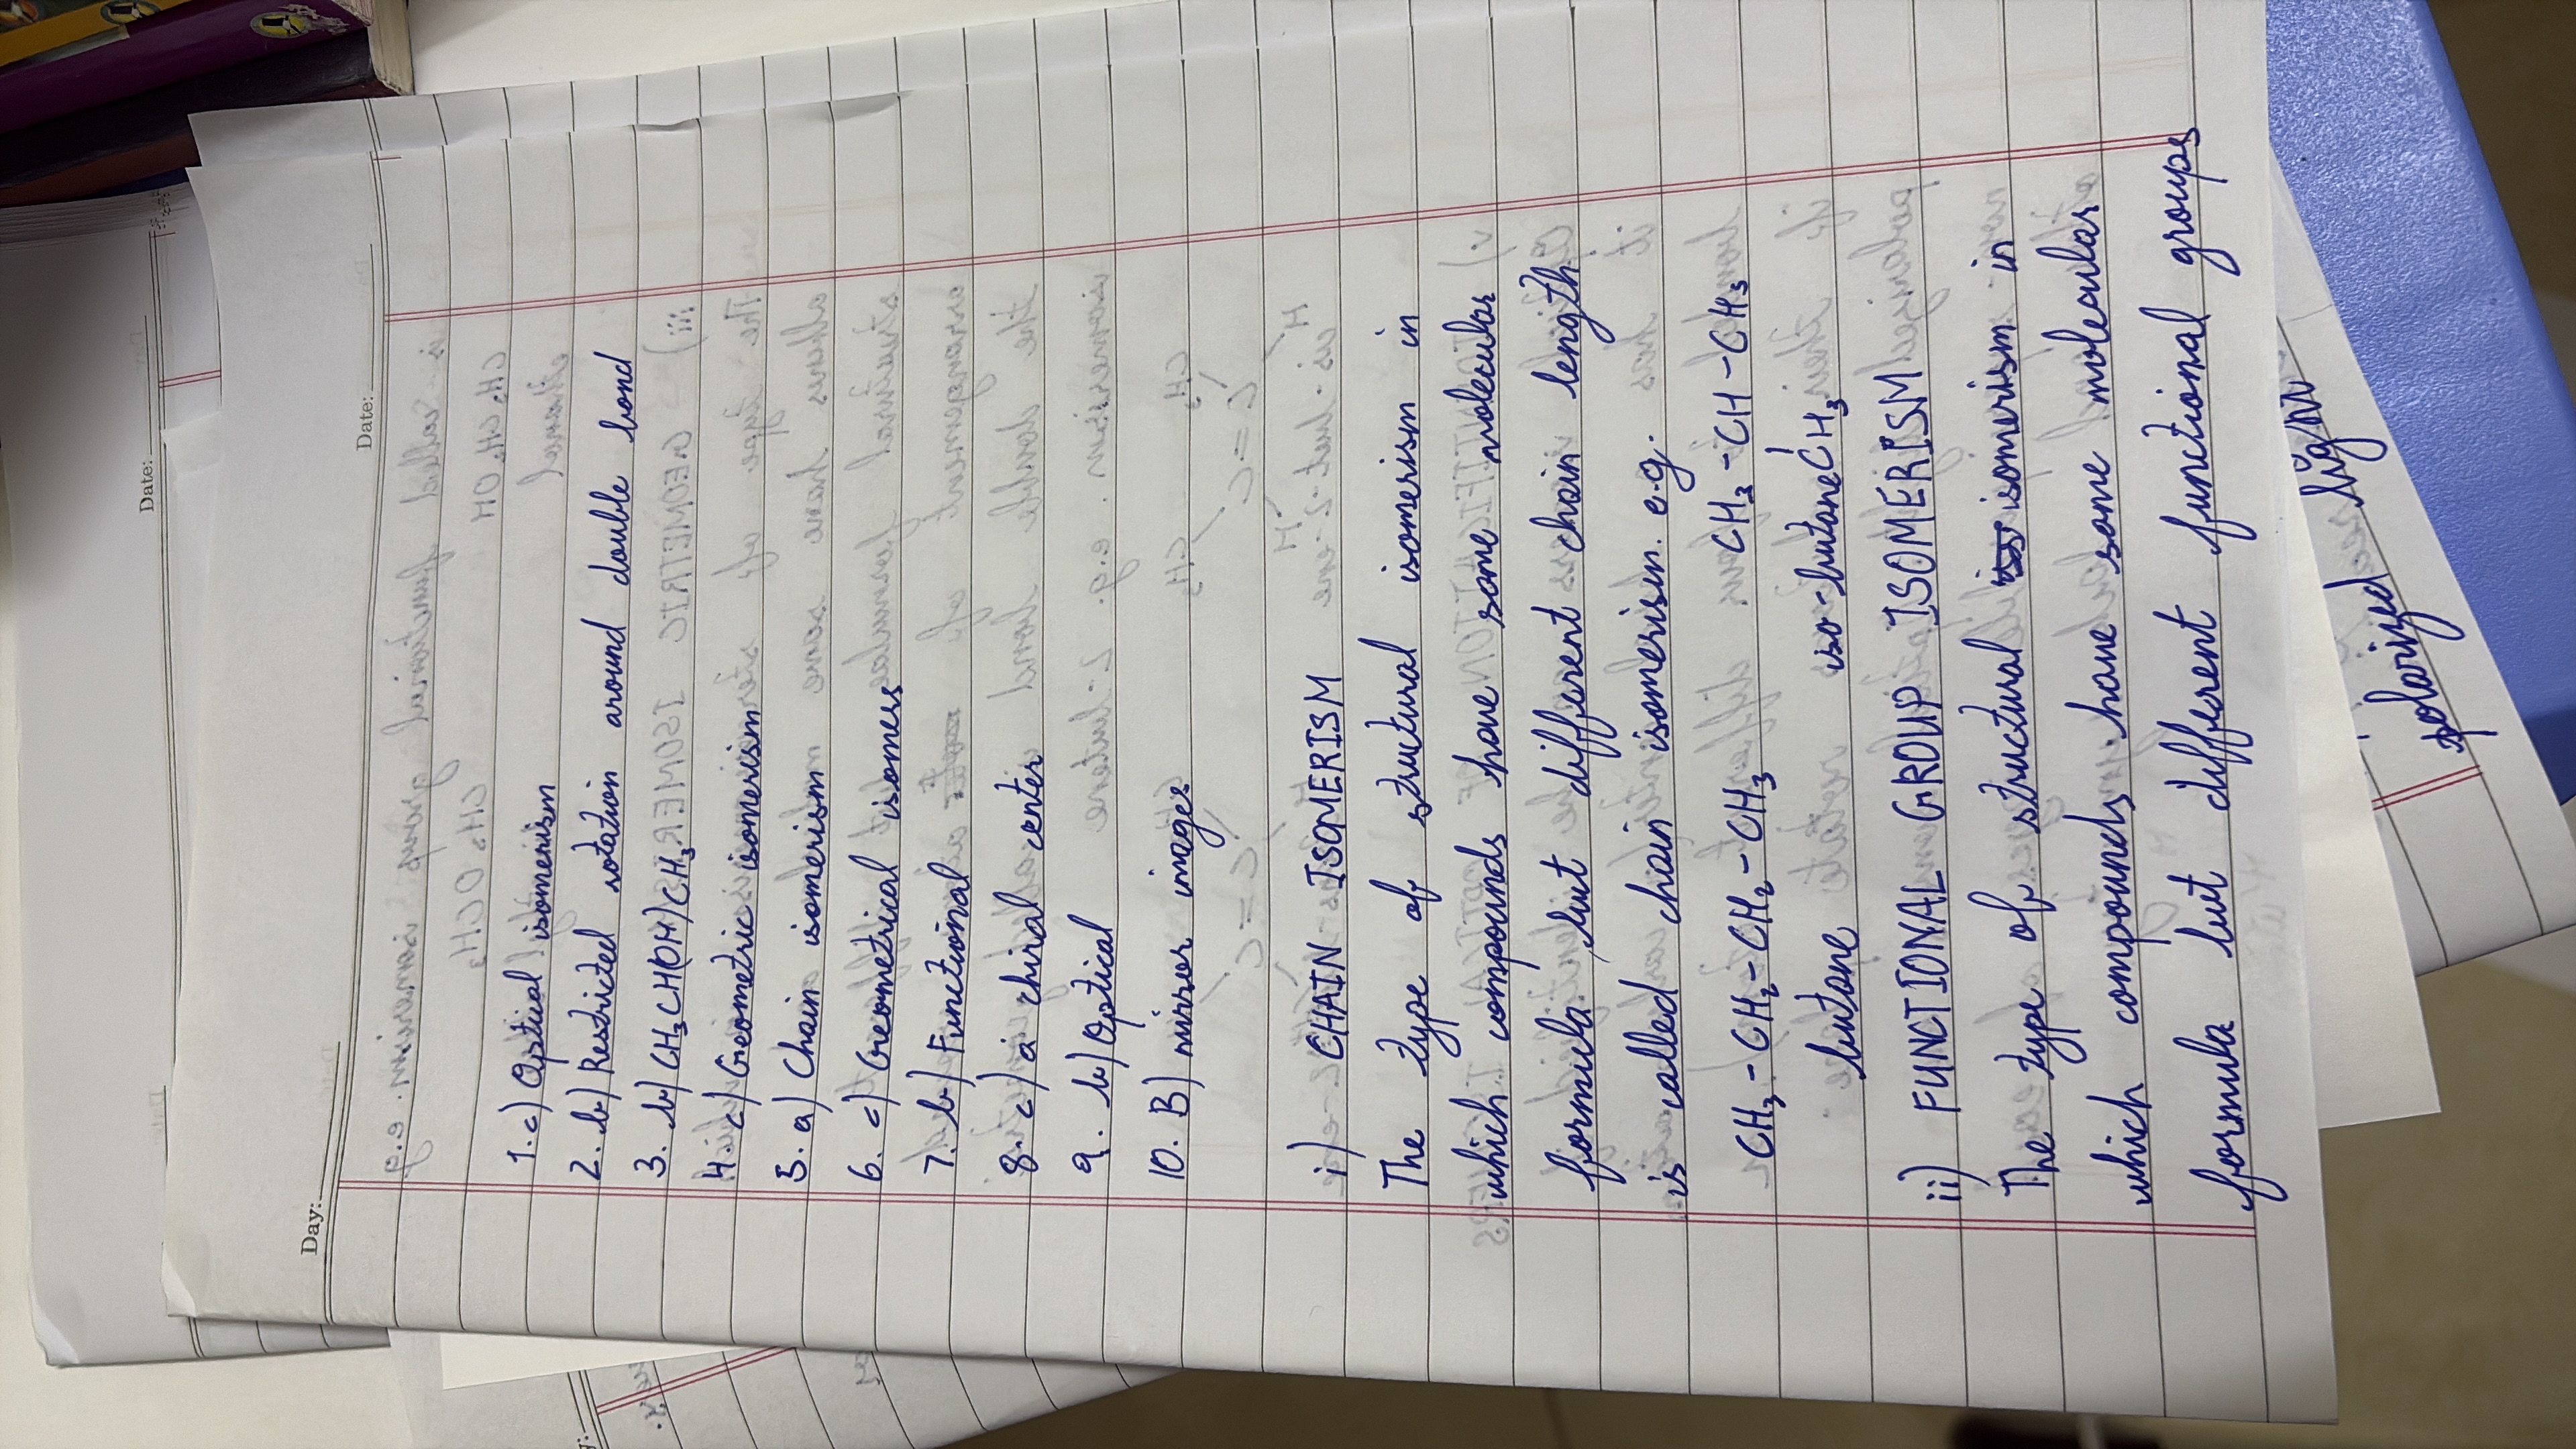 Day:
Date:
1. c) Optical isomerism
2. b) Restricted rotation around double bond
3. b) CH₃CH(OH)CH₃
4. c) Geometric isomerism
5. a) Chain isomerism
6. c) Geometrical isomers
7. b) Functional
8. c) a chiral center
9. b) Optical
10. B) mirror images
i) CHAIN ISOMERISM
The type of structural isomerism in
which compounds have same molecular
formula but different chain length
is called chain isomerism. e.g.
CH₃-CH₂-CH₂-CH₃ CH₃-CH-CH₃
butane iso-butane CH₃
ii) FUNCTIONAL GROUP ISOMERISM
The type of structural isomerism in
which compounds have same molecular
formula but different functional groups
Date:
polarized light